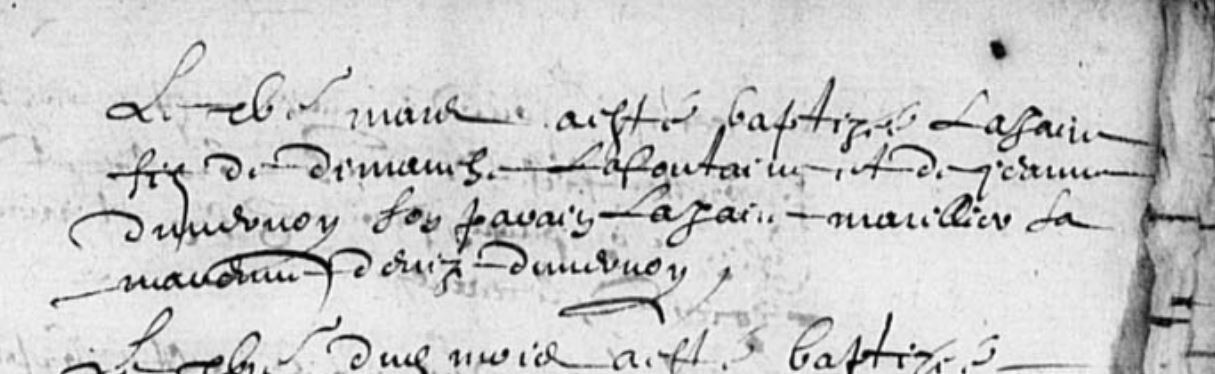 Le xbe mars a esté baptizé Lazaire
fiz de dimanche Lafontaine et de jeanne
Duvernoy son parain Lazaire marillier sa
maraine deniz Duvernoy
Le xbe dud mois a esté baptizé